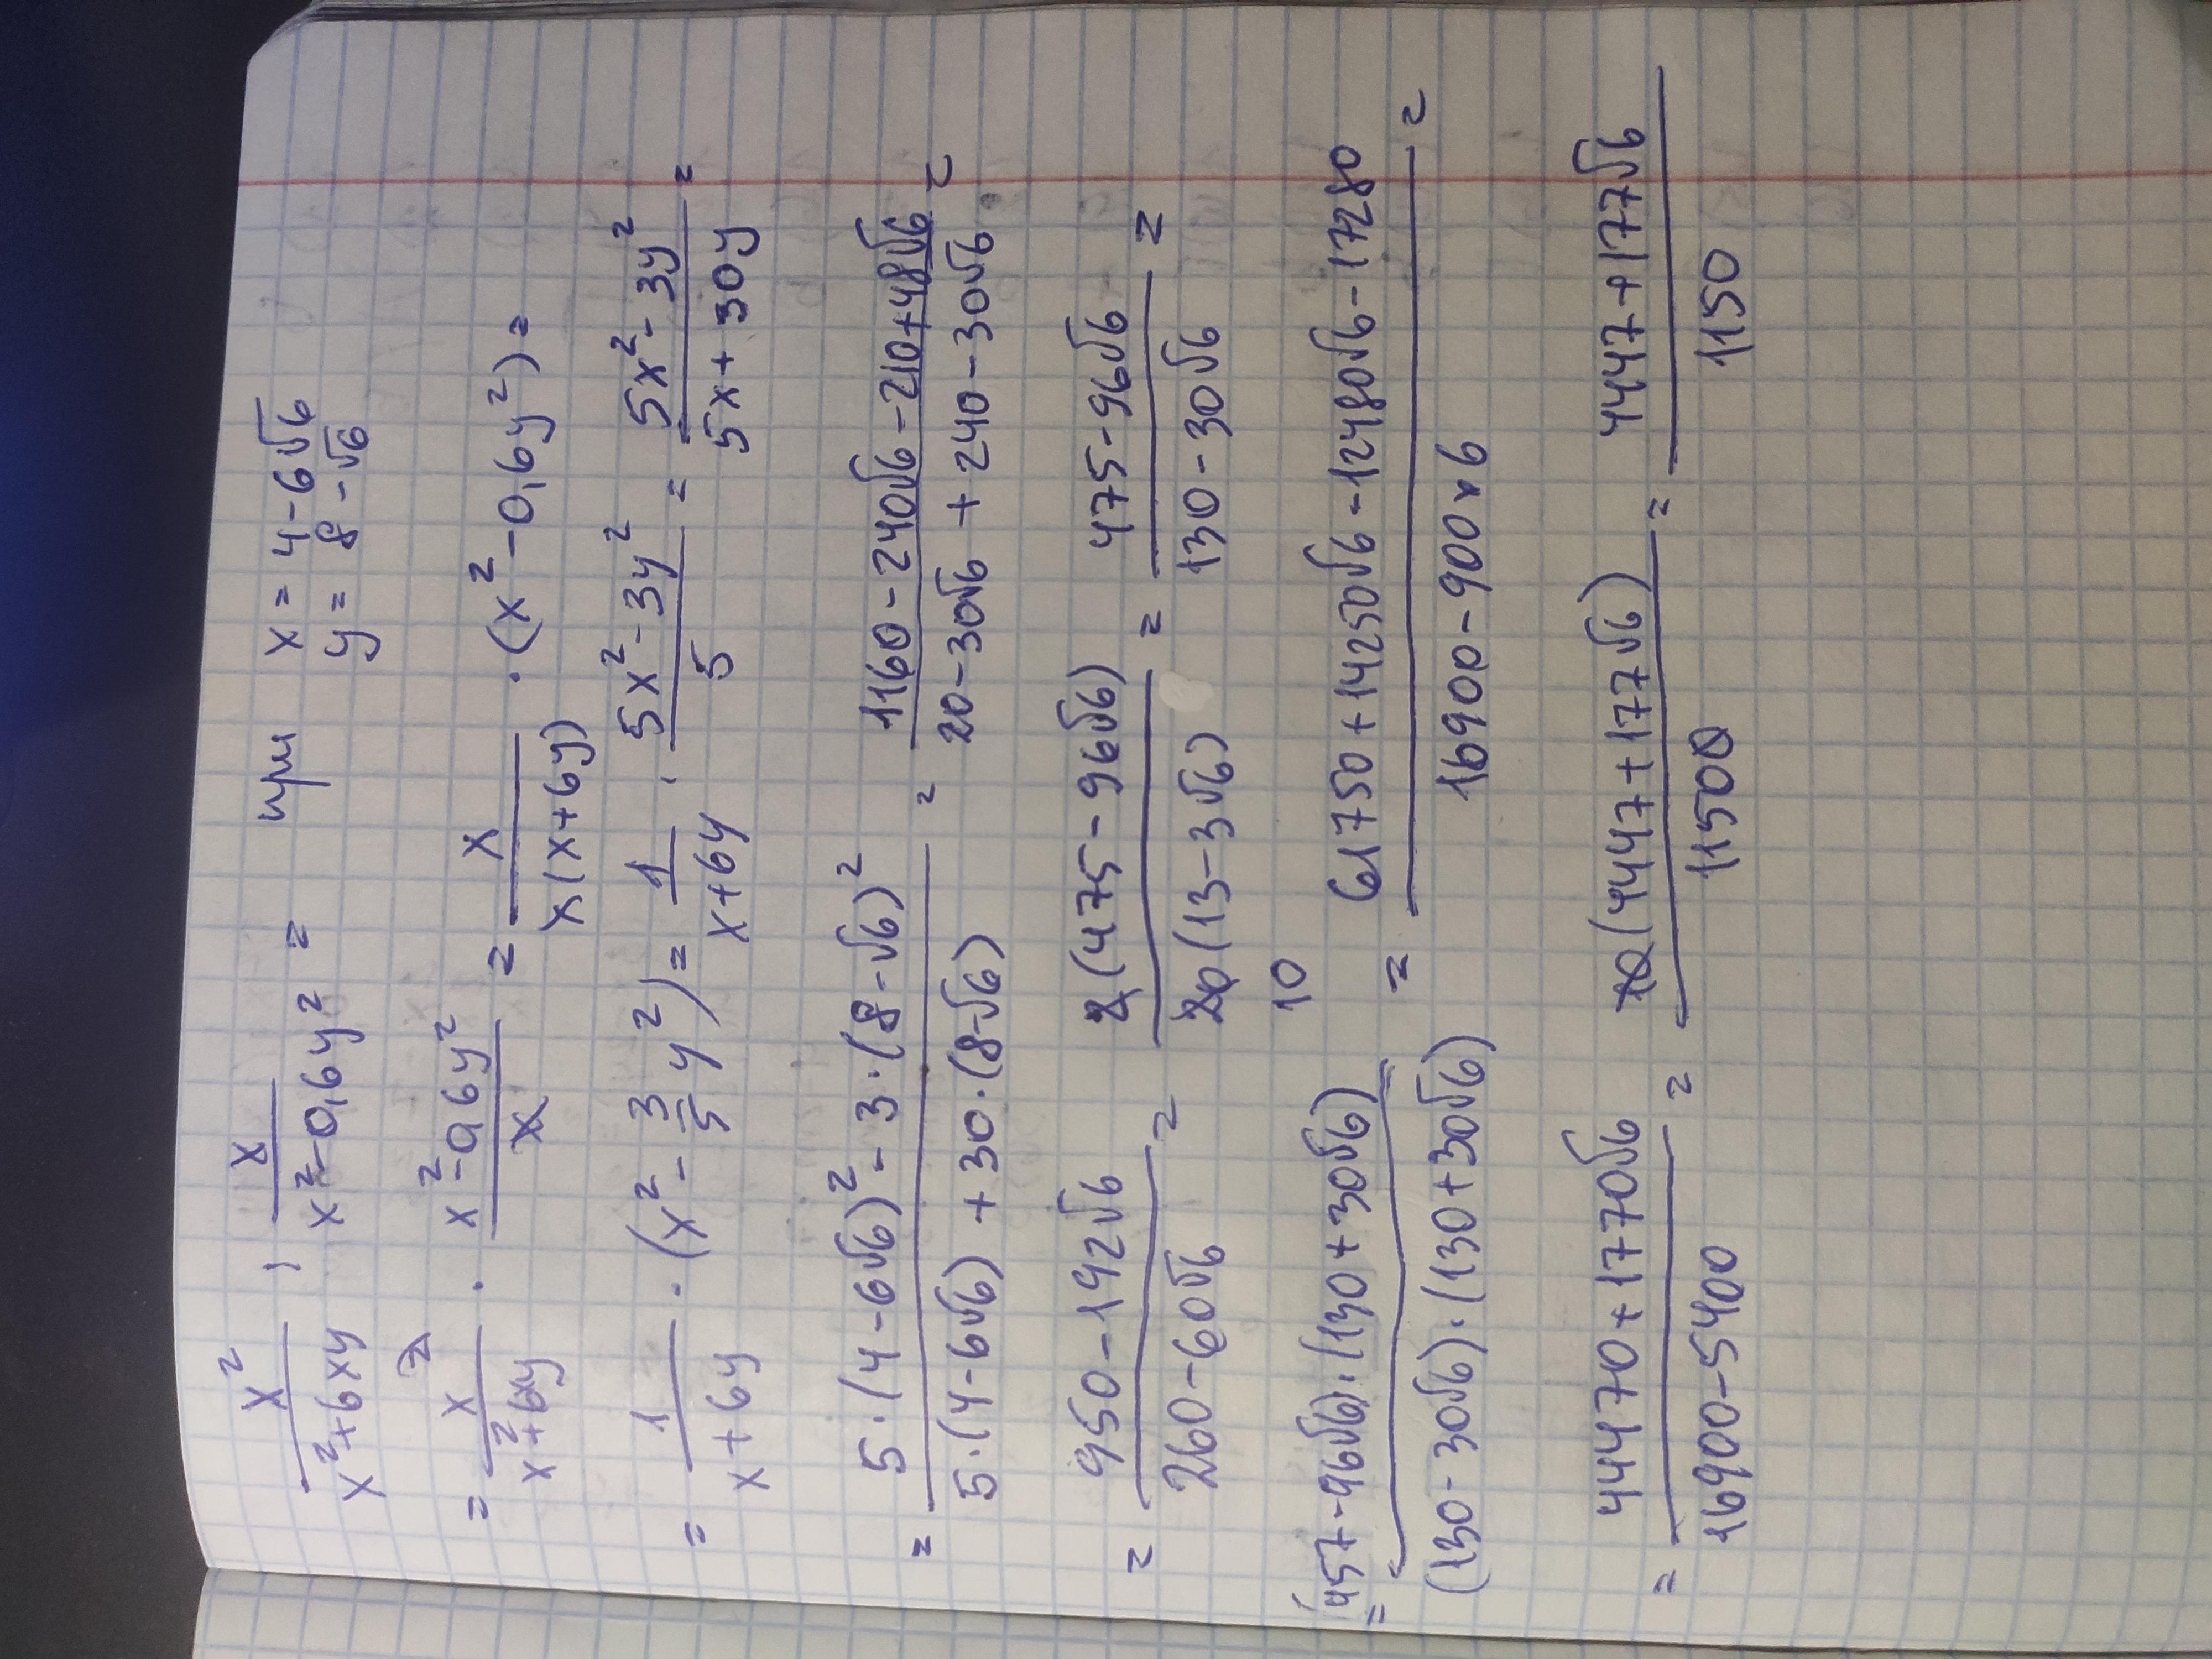 x²/(x²+6xy) : x/(x²-0,6y²) = при x = 4-6√6
y = 8-√6
= x/(x²+6xy) · (x²-0,6y²)/x = x/(x(x+6y)) · (x²-0,6y²) =
= 1/(x+6y) · (x² - 3/5 y²) = 1/(x+6y) · (5x²-3y²)/5 = (5x²-3y²)/(5x+30y) =
= (5·(4-6√6)² - 3·(8-√6)²)/(5·(4-6√6) + 30·(8-√6)) = (1160-240√6-210+48√6)/(20-30√6+240-30√6) =
= (950-192√6)/(260-60√6) = 2(475-96√6)/20(13-3√6) = (475-96√6)/(130-30√6) =
10
= (457-96√6)·(130+30√6)/(130-30√6)·(130+30√6) = (61750+14250√6-12480√6-17280)/(16900-900×6) =
= (44470+1770√6)/(16900-5400) = 10(4447+177√6)/11500 = (4447+177√6)/1150